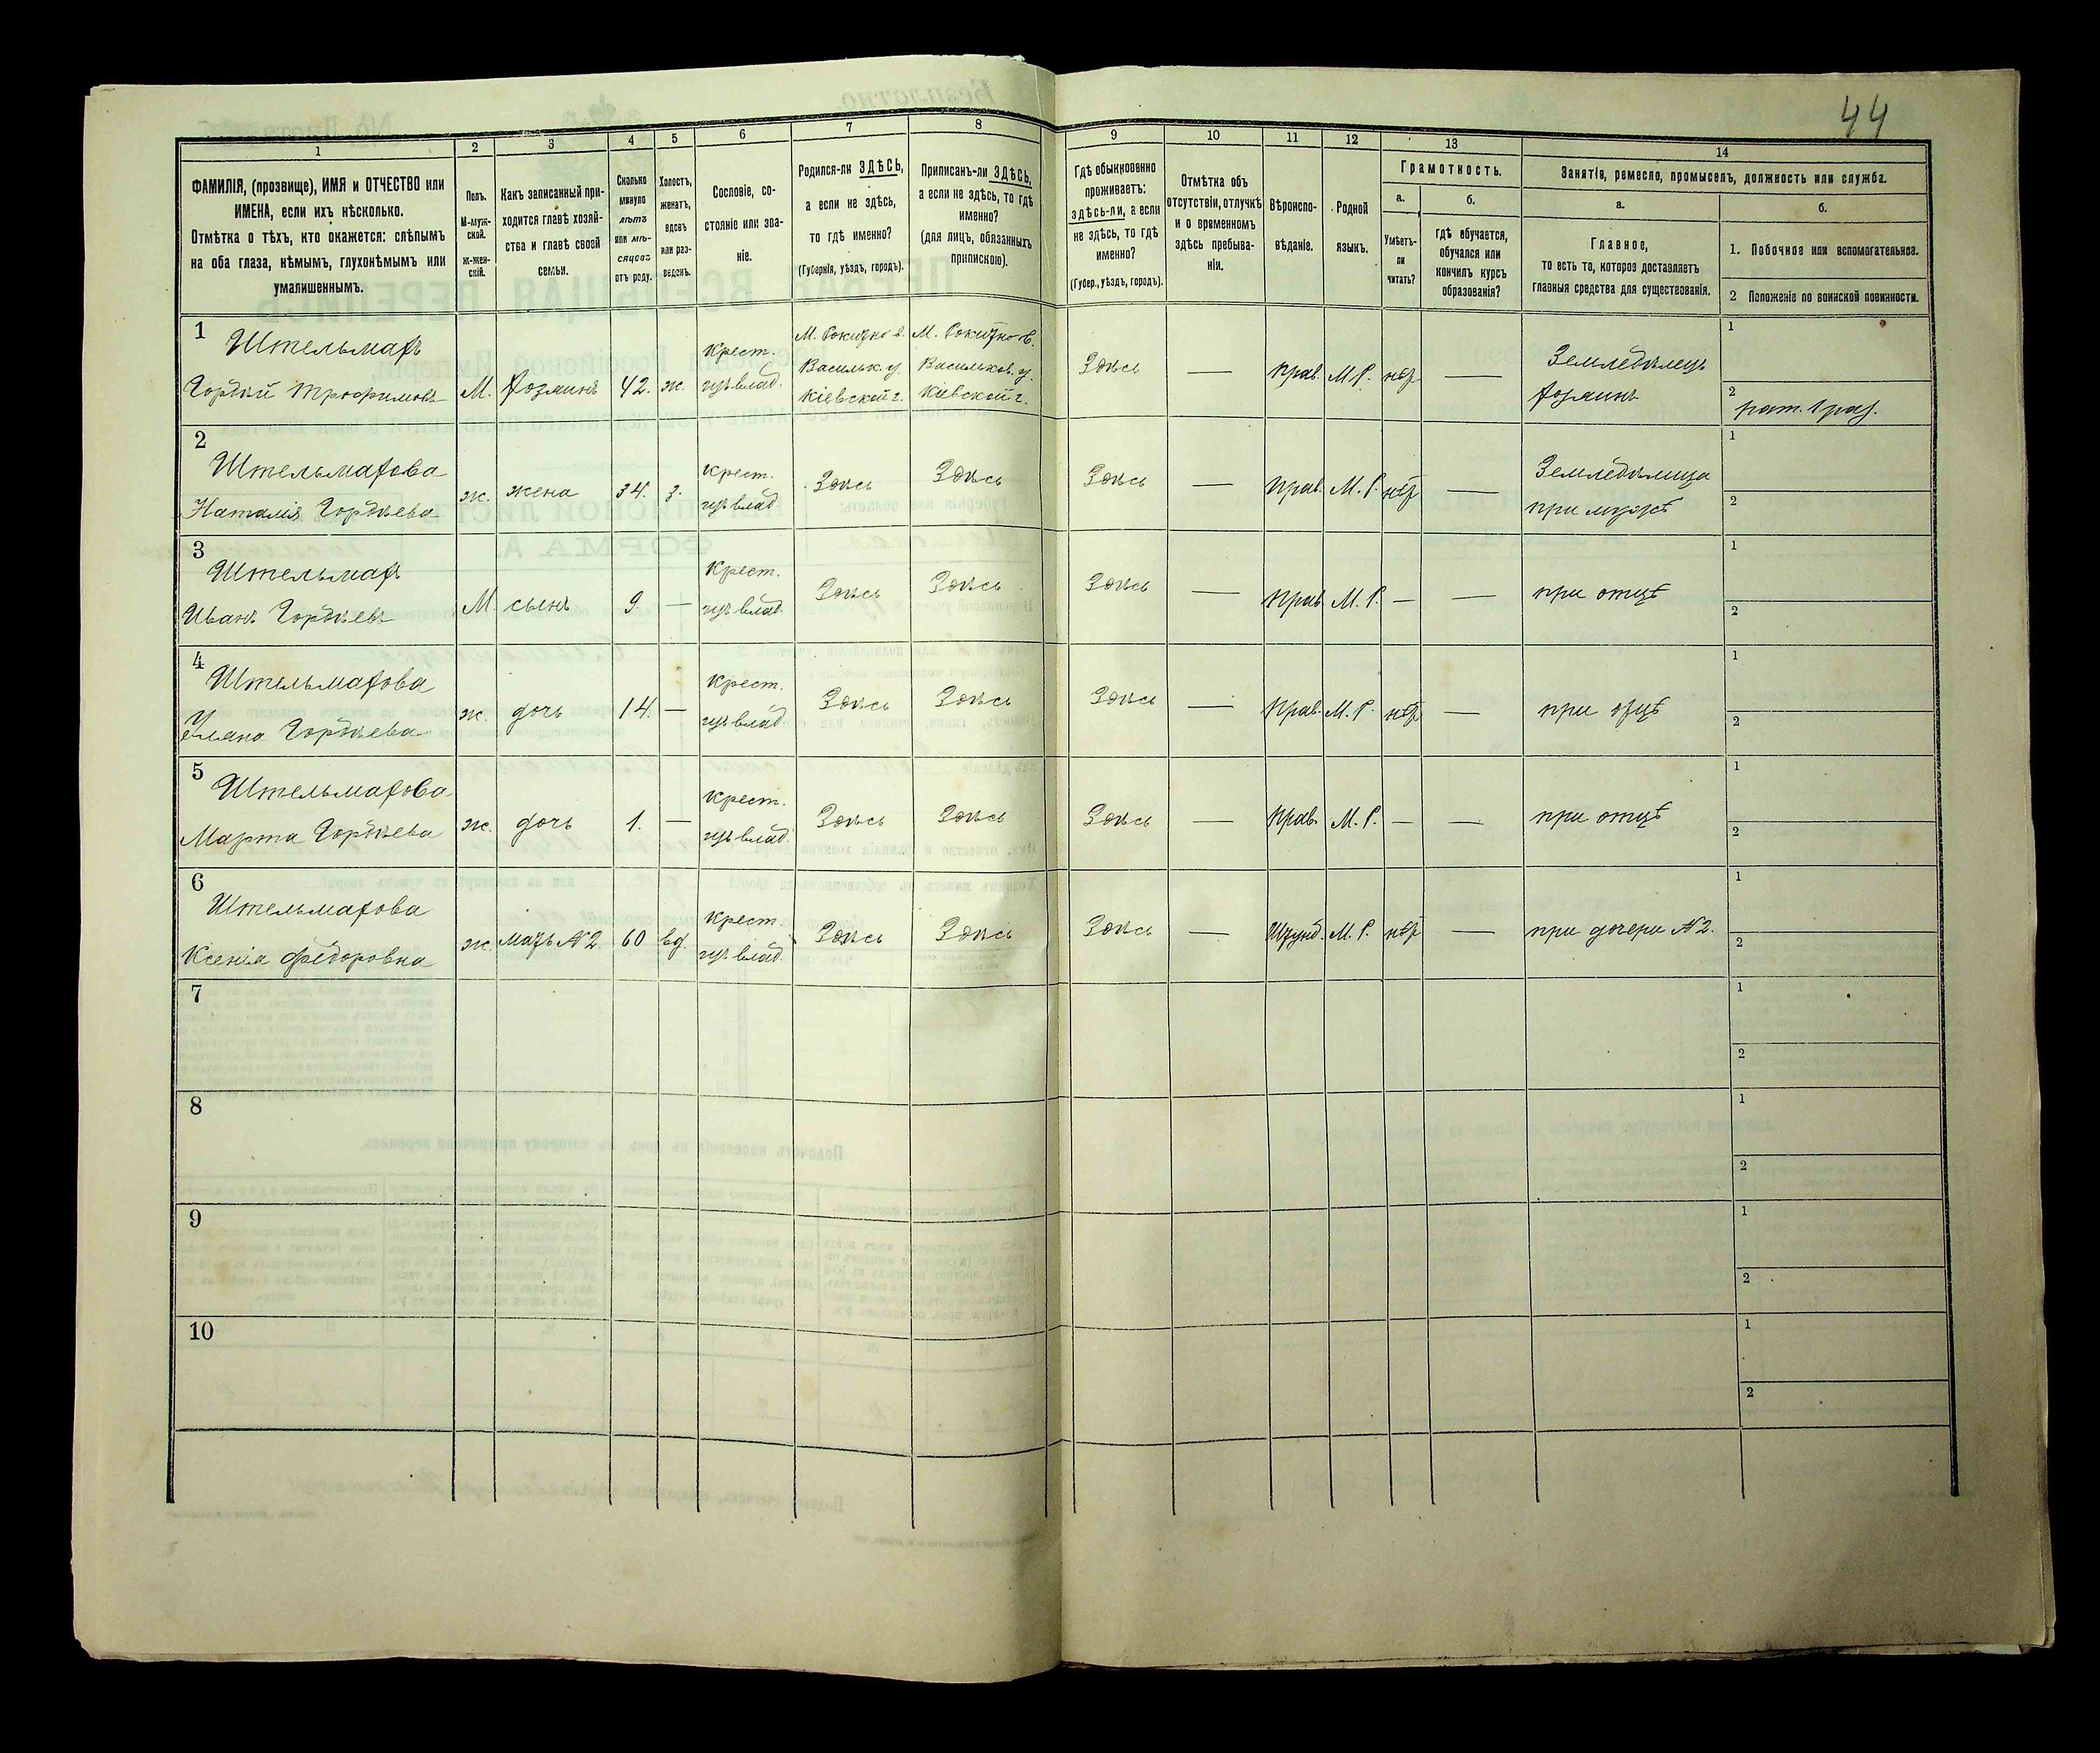 44
1
2
3
4
5
6
7
8
9
10
11
12
13
14
ФАМИЛІЯ, (прозвище), ИМЯ и ОТЧЕСТВО или
ИМЕНА, если ихъ нѣсколько.
Отмѣтка о тѣхъ, кто окажется: слѣпымъ
на оба глаза, нѣмымъ, глухонѣмымъ или
умалишеннымъ.
Полъ.
М-муж-
ской.
Ж-жен-
скій.
Какъ записанный при-
ходится главѣ хозяй-
ства и главѣ своей
семьи.
Сколько
минуло
лѣтъ
или мѣ-
сяцевъ
отъ роду.
Холостъ,
женатъ,
вдовъ
или раз-
веденъ.
Сословіе, со-
стояніе или зва-
ніе.
Родился-ли ЗДѢСЬ,
а если не здѣсь,
то гдѣ именно?
(Губернія, уѣздъ, городъ).
Приписанъ-ли ЗДѢСЬ,
а если не здѣсь, то гдѣ
именно?
(для лицъ, обязанныхъ
припискою).
Гдѣ обыкновенно
проживаетъ:
здѣсь-ли, а если
не здѣсь, то гдѣ
именно?
(Губер., уѣздъ, городъ).
Отмѣтка объ
отсутствіи, отлучкѣ
и о временномъ
здѣсь пребыва-
ніи.
Вѣроиспо-
вѣданіе.
Родной
языкъ.
Грамотность.
а.
Умѣетъ-
ли
читать?
б.
гдѣ обучается,
обучался или
кончилъ курсъ
образованія?
Занятіе, ремесло, промыселъ, должность или служба.
а.
Главное,
то есть то, которое доставляетъ
главныя средства для существованія.
б.
1. Побочное или вспомогательное.
2 Положеніе по воинской повинности.
1
Штельмахъ
Гордѣй Трофимовъ
М.
хозяинъ
42.
ж.
Крест.
изъ влад.
М. Рокитно в.
Васильк. у.
Кіевской г.
М. Рокитно в.
Васильков. у.
Кіевской г.
Здѣсь
—
Прав.
М. Р.
нѣт
—
Земледѣлецъ
хозяинъ
1
2
рат. 1 раз.
2
Штельмахова
Наталія Гордѣева
ж.
жена
34.
з.
Крест.
изъ влад
Здѣсь
Здѣсь
Здѣсь
—
Прав.
М. Р.
нѣт
—
Земледѣлица
при мужѣ
1
2
3
Штельмахъ
Иванъ Гордѣевъ
М.
сынъ
9
—
Крест.
изъ влад.
Здѣсь
Здѣсь
Здѣсь
—
Прав.
М. Р.
—
—
при отцѣ
1
2
4
Штельмахова
Уляна Гордѣева
ж.
дочь
14.
—
Крест.
изъ влад.
Здѣсь
Здѣсь
Здѣсь
—
Прав.
М. Р.
нѣт
—
при отцѣ
1
2
5
Штельмахова
Марта Гордѣева
ж.
дочь
1.
—
Крест.
изъ влад.
Здѣсь
Здѣсь
Здѣсь
—
Прав.
М. Р.
—
—
при отцѣ
1
2
6
Штельмахова
Ксенія Федоровна
ж.
мать №2
60
вд.
Крест.
изъ влад.
Здѣсь
Здѣсь
Здѣсь
—
Штунд.
М. Р.
нѣт
—
при дочери №2.
1
2
7
1
2
8
1
2
9
1
2
10
1
2